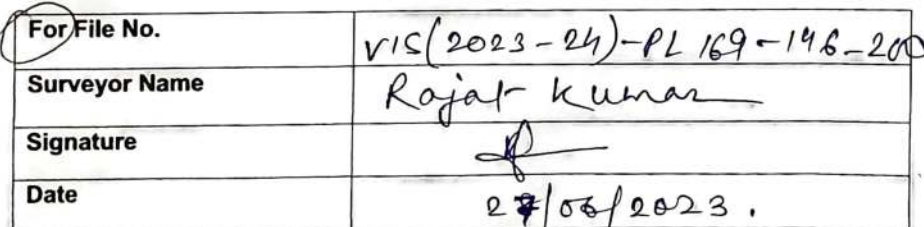 For File No. VIS(2023-24)-PL169-146-200
Surveyor Name Rajat Kumar
Signature
Date 27/06/2023.